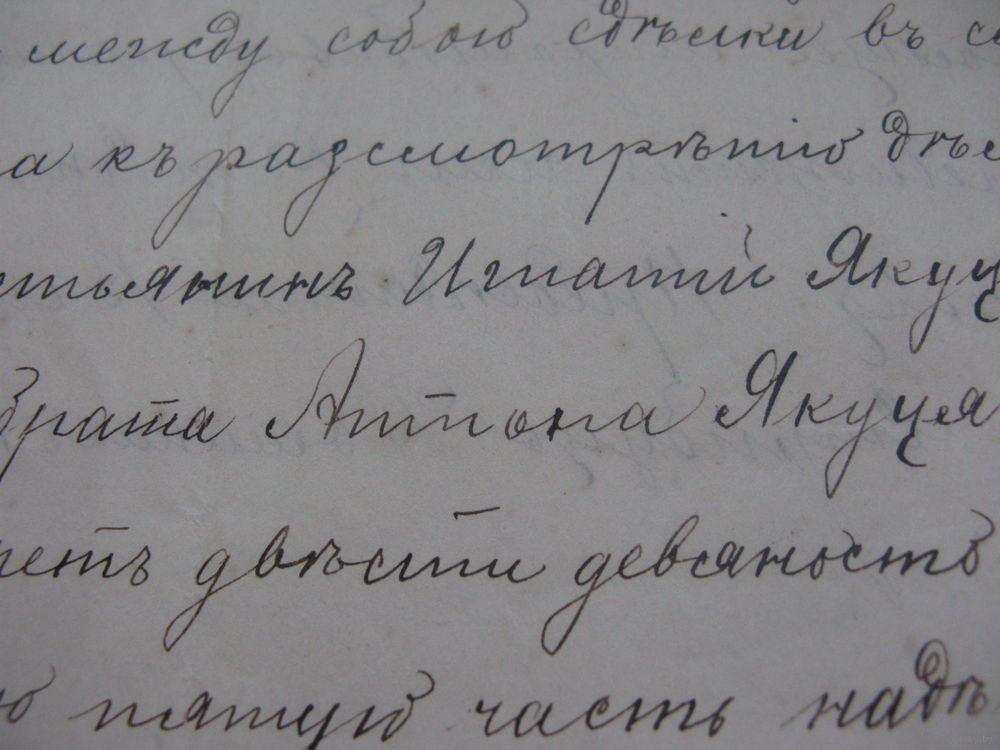 между собою сдѣлки въ со
а къ разсмотрѣнію дѣл
стьянинъ Игнатій Якуц
брата Антона Якуця
ретъ двѣсти девяность
ю пятую часть надѣ